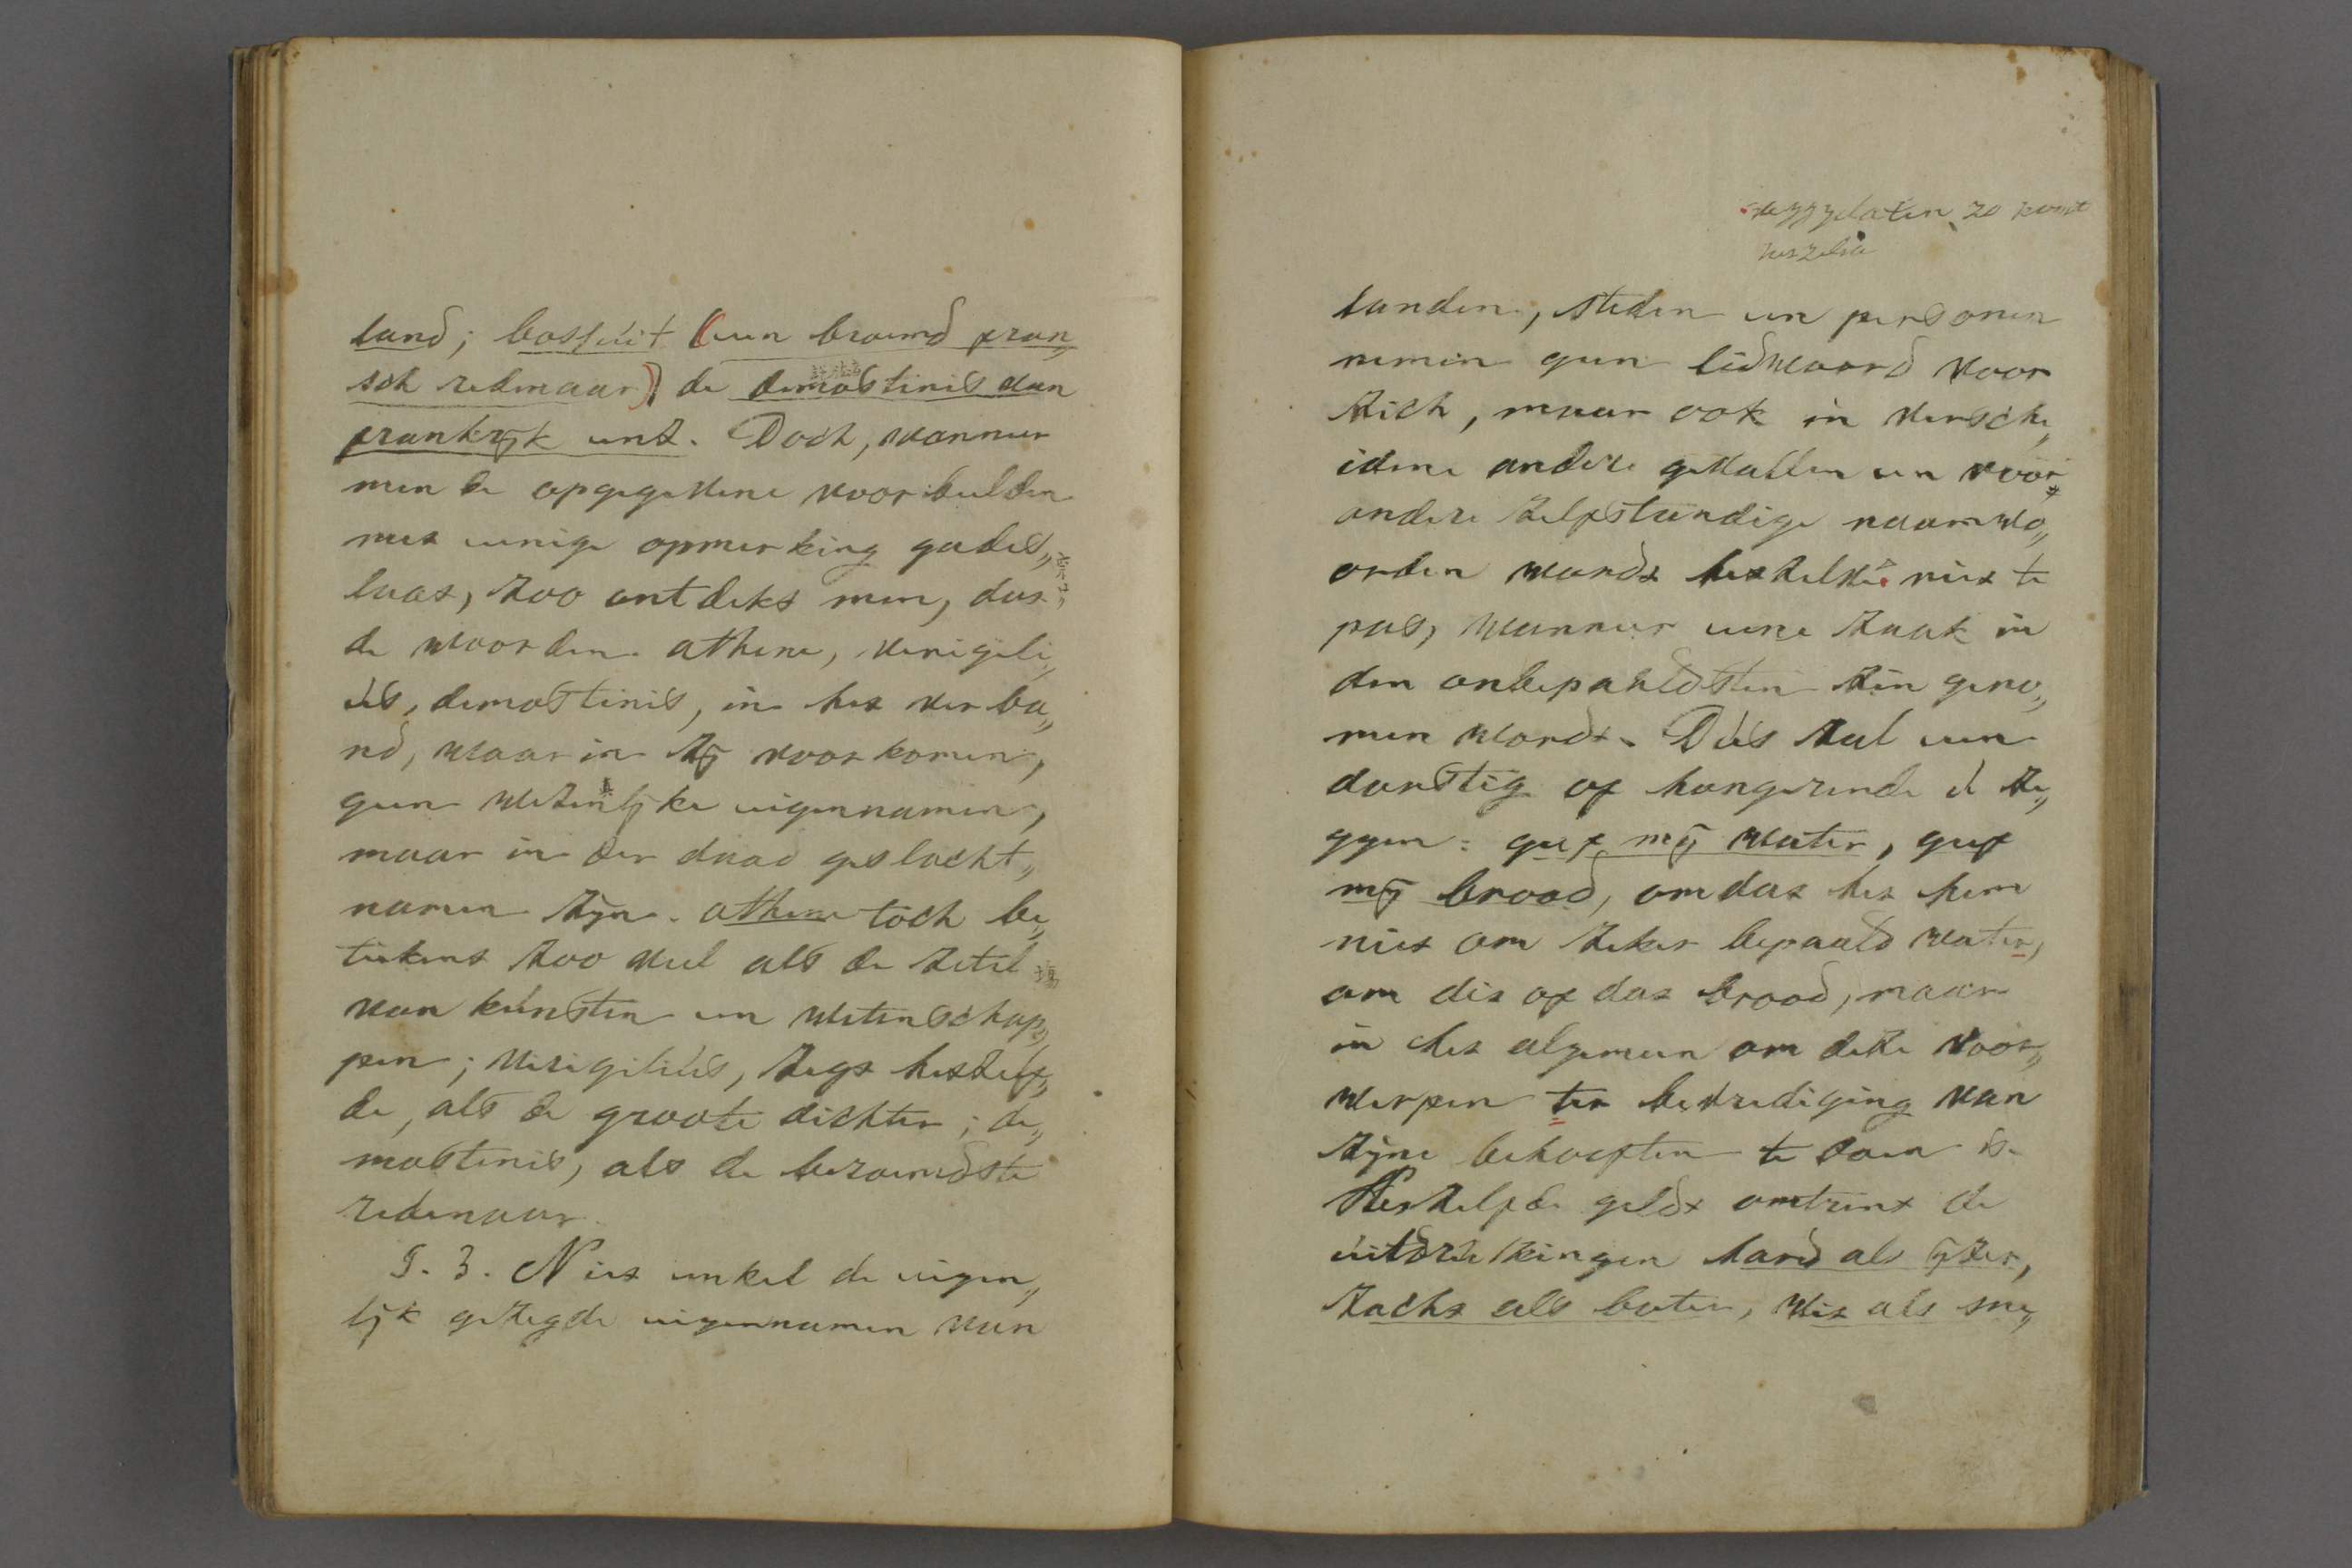 land; bossuit (een broemd fran„
sch redenaar) de demostinis van
frankrijk enz. Doch, wanneer
men de opgegevene voorbeelden
met eenige opmerking gades„
laat, zoo ontdekt men, dat
de woorden athene, verigeli„
us, demostinis, in het verba„
nd, waar in zij voor komen,
geen wezenlijke eigennamen,
maar in der daad geslacht„
namen zijn. athene toch be„
teekent zoo veel als de zetel
van kunsten en wetenschap„
pen; virigilius, zegt hetzelf„
de, als de groote dichter; de„
mostenis, als de beroemdste
redenaar.
§. 3. Niet enkel de eigen„
lijk gezegde eigennamen van
zo komt
hetzelve
landen, steden en personen
nemen geen lidwoord voor
zich, maar ook in versche„
idene andere gevallen en voor
andere zelfstandige naamwo„
orden wordt hetzelve niet te
pas, wanneer eene zaak in
den onbepaaldsten zin geno„
men wordt. Dus zal een
dorstig of hongerende ze„
ggen: geef mij water, geef
mij brood, om dat het hem
niet om zeker bepaald water,
om dit of dat brood, maar
in het algemeen om deze voor„
werpen ter bevrediging van
zijne behoeften te doen is.
Hetzelfde geldt omtrent de
uitdrukkingen hard als ijzer,
zacht als boter, wit als sne„